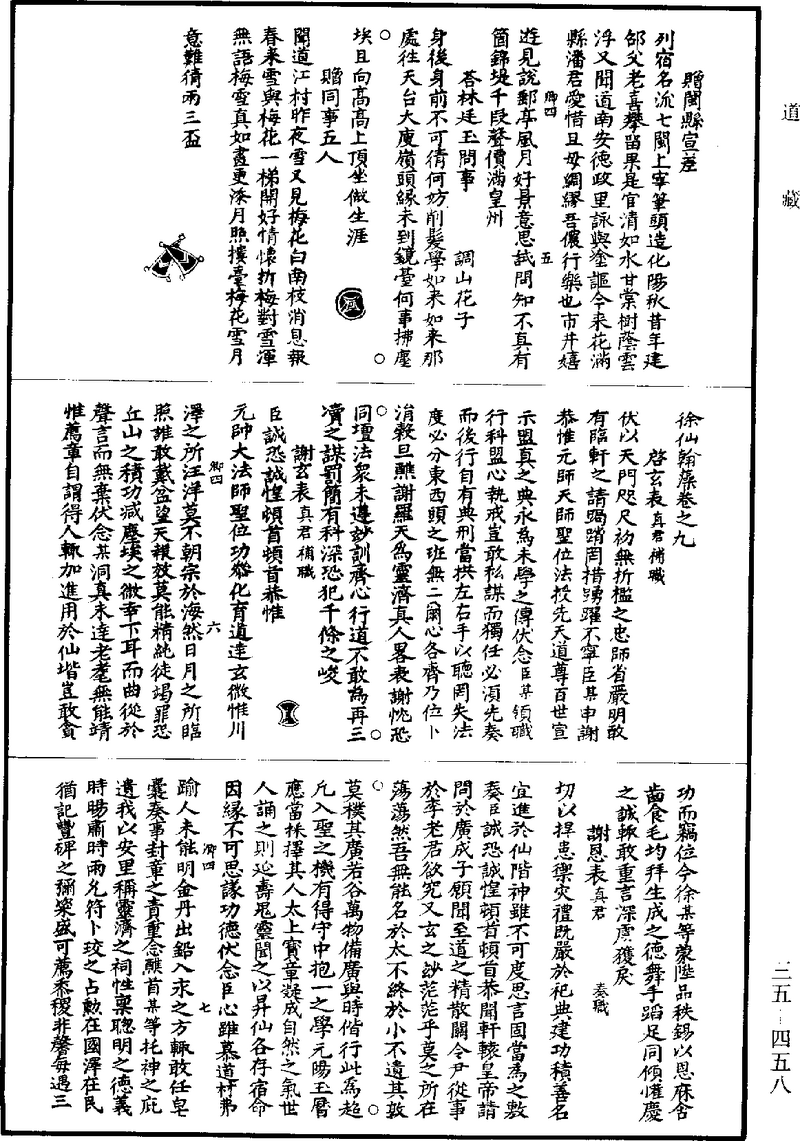 道藏
贈閩縣宣差
列宿名流七閩上宰筆頭造化陽秋昔年建
邵父老喜攀留果是官清如水甘棠樹蔭雲
浮又聞道南安德政里詠與塗謳今來花滿
縣潘君愛惜且毋綢繆吾儂行樂也市井嬉
遊見說郵亭風月好景意思試問知不真有
箇錦堤千段聲價滿皇州
答林廷玉問事 調山花子
身後身前不可猜何妨削髮學如來如來那
處往天台大庾嶺頭緣未到鏡臺何事拂塵
埃且向高高上頂坐做生涯
贈同事五人
聞道江村昨夜雪又見梅花白南枝消息報
春來雪與梅花一梯開好情懷折梅對雪渾
無語梅雪真如畫更添月照樓臺梅花雪月
意難猜兩三盃
徐仙翰藻卷之九
啓玄表真君補職
伏以天門咫尺初無折檻之忠師省嚴明敢
有臨軒之請跼蹐罔措踴躍不寧臣某申謝
恭惟元師天師聖位法授先天道尊百世宣
示盟真之典永爲末學之傳伏念臣某領職
行科盟心執戒豈敢私謀而獨任必須先奏
而後行自有典刑當拱左右手以聽罔失法
度必分東西頭之班無二爾心各齊乃位卜
涓穀旦醮謝羅天爲靈濟真人畧表謝忱恐
同壇法衆未遵妙訓齊心行道不敢爲再三
瀆之謀罰簡有科深恐犯千條之峻
謝玄表真君補職
臣誠恐誠惶頓首頓首恭惟
元帥大法師聖位功叅化育道達玄微惟川
澤之所汪洋莫不朝宗於海然日月之所臨
照誰敢戴盆望天報效莫能精純徒竭罪恐
丘山之積功減塵埃之微幸下耳而曲從於
聲言而無棄伏念某洞真未達老耄無能靖
惟薦章自謂得人輒加進用於仙堦豈敢貪
功而竊位今徐某等蒙陞品秩錫以恩庥含
齒食毛均拜生成之德舞手蹈足同傾懽慶
之誠輒敢重言深虞獲戾
謝恩表真君奏職
切以捍患禦灾禮既嚴於祀典建功積善名
宜進於仙階神雖不可度思言固當爲之敷
奏臣誠恐誠惶頓首頓首恭聞軒轅皇帝請
問於廣成子願聞至道之精散關令尹從事
於李老君欲究又玄之妙茫茫乎莫之所在
蕩蕩然吾無能名於太不終於小不遺其敦
莫樸其廣若谷萬物備廣與時偕行此爲超
凡入聖之機有得守中抱一之學元陽玉曆
應當採擇其人太上寶章凝成自然之氣世
人誦之則延壽鬼靈聞之以昇仙各存宿命
因緣不可思議功德伏念臣心雖慕道材弗
踰人未能明金丹出鉛入汞之方輒敢任皂
囊奏事封章之責重念醮首某等托神之庇
遺我以安里稱靈濟之祠性稟聰明之德義
時暘肅時雨允符卜珓之占勲在國澤在民
猶記豐碑之彌粢盛可薦黍稷非馨每遇三
三五―四五八